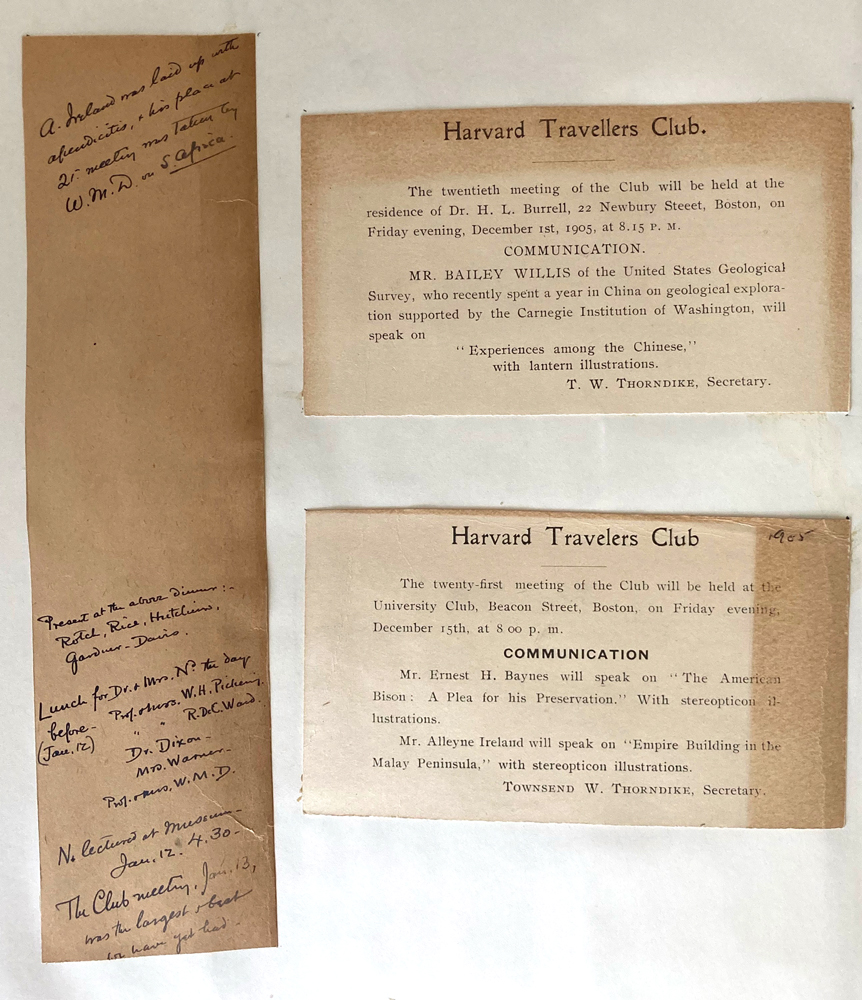 A. Ireland was laid up with
apendicitis, + his place at
21st meeting was taken by
W.M.D. on S. Africa.
Present at the above dinner:-
Rotch, Rice, Hutchins,
Gardner - Davis.
Lunch for Dr. + Mrs. N. the day
before - Prof. + Mrs. W.H. Pickering.
(Jan. 12) " " R. DeC. Ward.
Dr. Dixon -
Mrs. Warner -
Prof. + Mrs. W.M.D.
N. lectured at Museum -
Jan. 12. 4.30 -
The Club meeting, Jan. 13,
was the largest + best
we have yet had -
Harvard Travellers Club.
The twentieth meeting of the Club will be held at the
residence of Dr. H. L. Burrell, 22 Newbury Steeet, Boston, on
Friday evening, December 1st, 1905, at 8.15 P. M.
COMMUNICATION.
MR. BAILEY WILLIS of the United States Geological
Survey, who recently spent a year in China on geological explora-
tion supported by the Carnegie Institution of Washington, will
speak on
"Experiences among the Chinese,"
with lantern illustrations.
T. W. THORNDIKE, Secretary.
Harvard Travelers Club 1905
The twenty-first meeting of the Club will be held at the
University Club, Beacon Street, Boston, on Friday evening,
December 15th, at 8 00 p. m.
COMMUNICATION
Mr. Ernest H. Baynes will speak on "The American
Bison: A Plea for his Preservation." With stereopticon il-
lustrations.
Mr. Alleyne Ireland will speak on "Empire Building in the
Malay Peninsula," with stereopticon illustrations.
TOWNSEND W. THORNDIKE, Secretary.